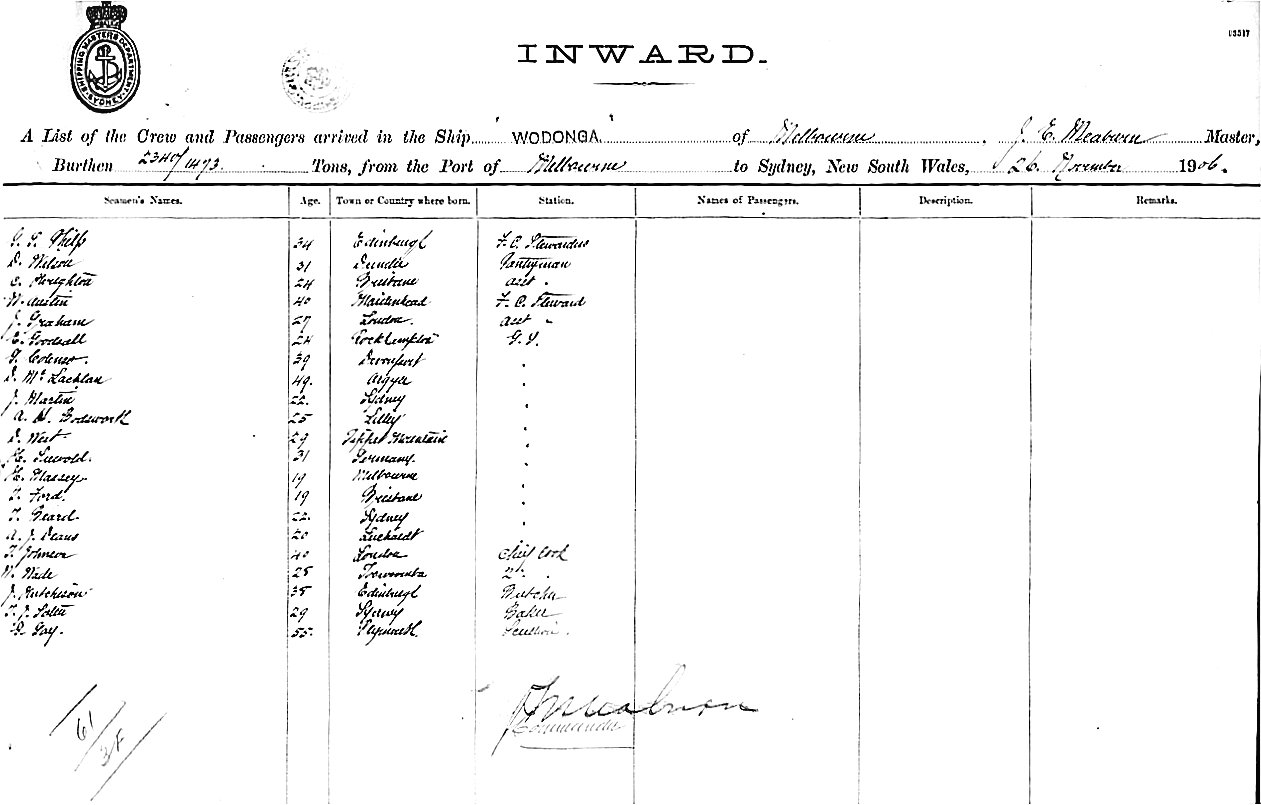 03517
SHIPPING MASTER'S DEPARTMENT SYDNEY
INWARD.
A List of the Crew and Passengers arrived in the Ship "WODONGA" of Melbourne, J. E. Meaburn Master,
Burthen 2340/1473 Tons, from the Port of Melbourne to Sydney, New South Wales, 26 November 1906.
Seamen's Names. Age. Town or Country where born. Station. Names of Passengers. Description. Remarks.
Philp 34 Edinburgh F. C. Stewardess
D. Wilson 31 Dundee Pantryman
C. Creighton 24 Brisbane asst "
W. Austin 40 Maidenhead F. C. Steward
J. Graham 27 London. asst "
E. Goodsall 24 Rockhampton G. S.
39 Devonport "
D. McLachlan 49. Argyle "
J. Martin 22. Sydney "
A. H. Bodsworth 25 "
D. West. 29 "
H. 31 Germany. "
H. Massey 19 Melbourne "
T. Ford. 19 Brisbane "
T. Beard. 22. Sydney "
A. J. Deans 20 Leichardt
T. Johnson 40 London Chief Cook
W. Wade 25 Toowoomba 2nd "
J. Hutchison 35 Edinburgh Butcher
T. J. 29 Sydney Baker
Gay. 55. Plymouth. Scullion.
J E Meaburn
Commander
61/3F